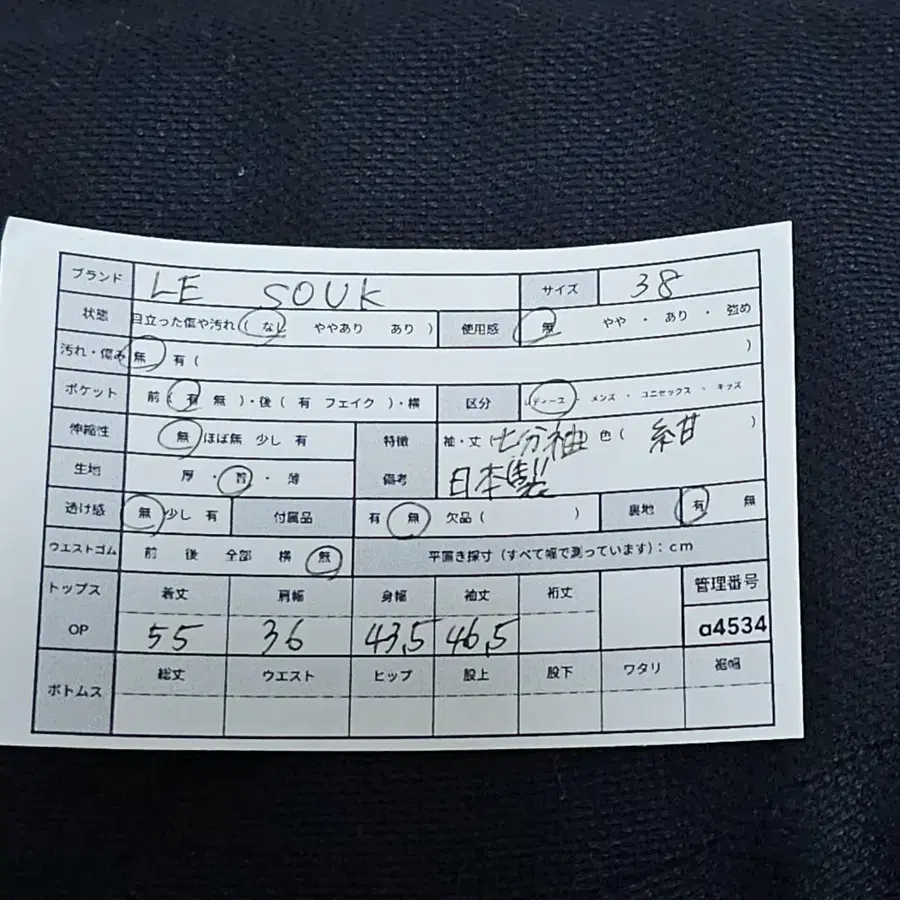 ブランド LE SOUK サイズ 38
状態 目立った傷や汚れ ( なし ややあり あり ) 使用感 無 やや ・ あり ・ 強め
汚れ・傷み 無 有 ( )
ポケット 前 ( 有 無 )・後 ( 有 フェイク )・横 区分 レディース ・ メンズ ・ ユニセックス ・ キッズ
伸縮性 無 ほぼ無 少し 有 特徴 袖・丈 ( 七分袖 色 ( 紺 )
生地 厚 ・ 普 ・ 薄 備考 日本製
透け感 無 少し 有 付属品 有 無 欠品 ( ) 裏地 有 無
ウエストゴム 前 後 全部 横 無 平置き採寸 (すべて幅で測っています) : cm
トップス 着丈 肩幅 身幅 袖丈 裄丈 管理番号
OP 55 36 43,5 46,5 a4534
ボトムス 総丈 ウエスト ヒップ 股上 股下 ワタリ 裾幅